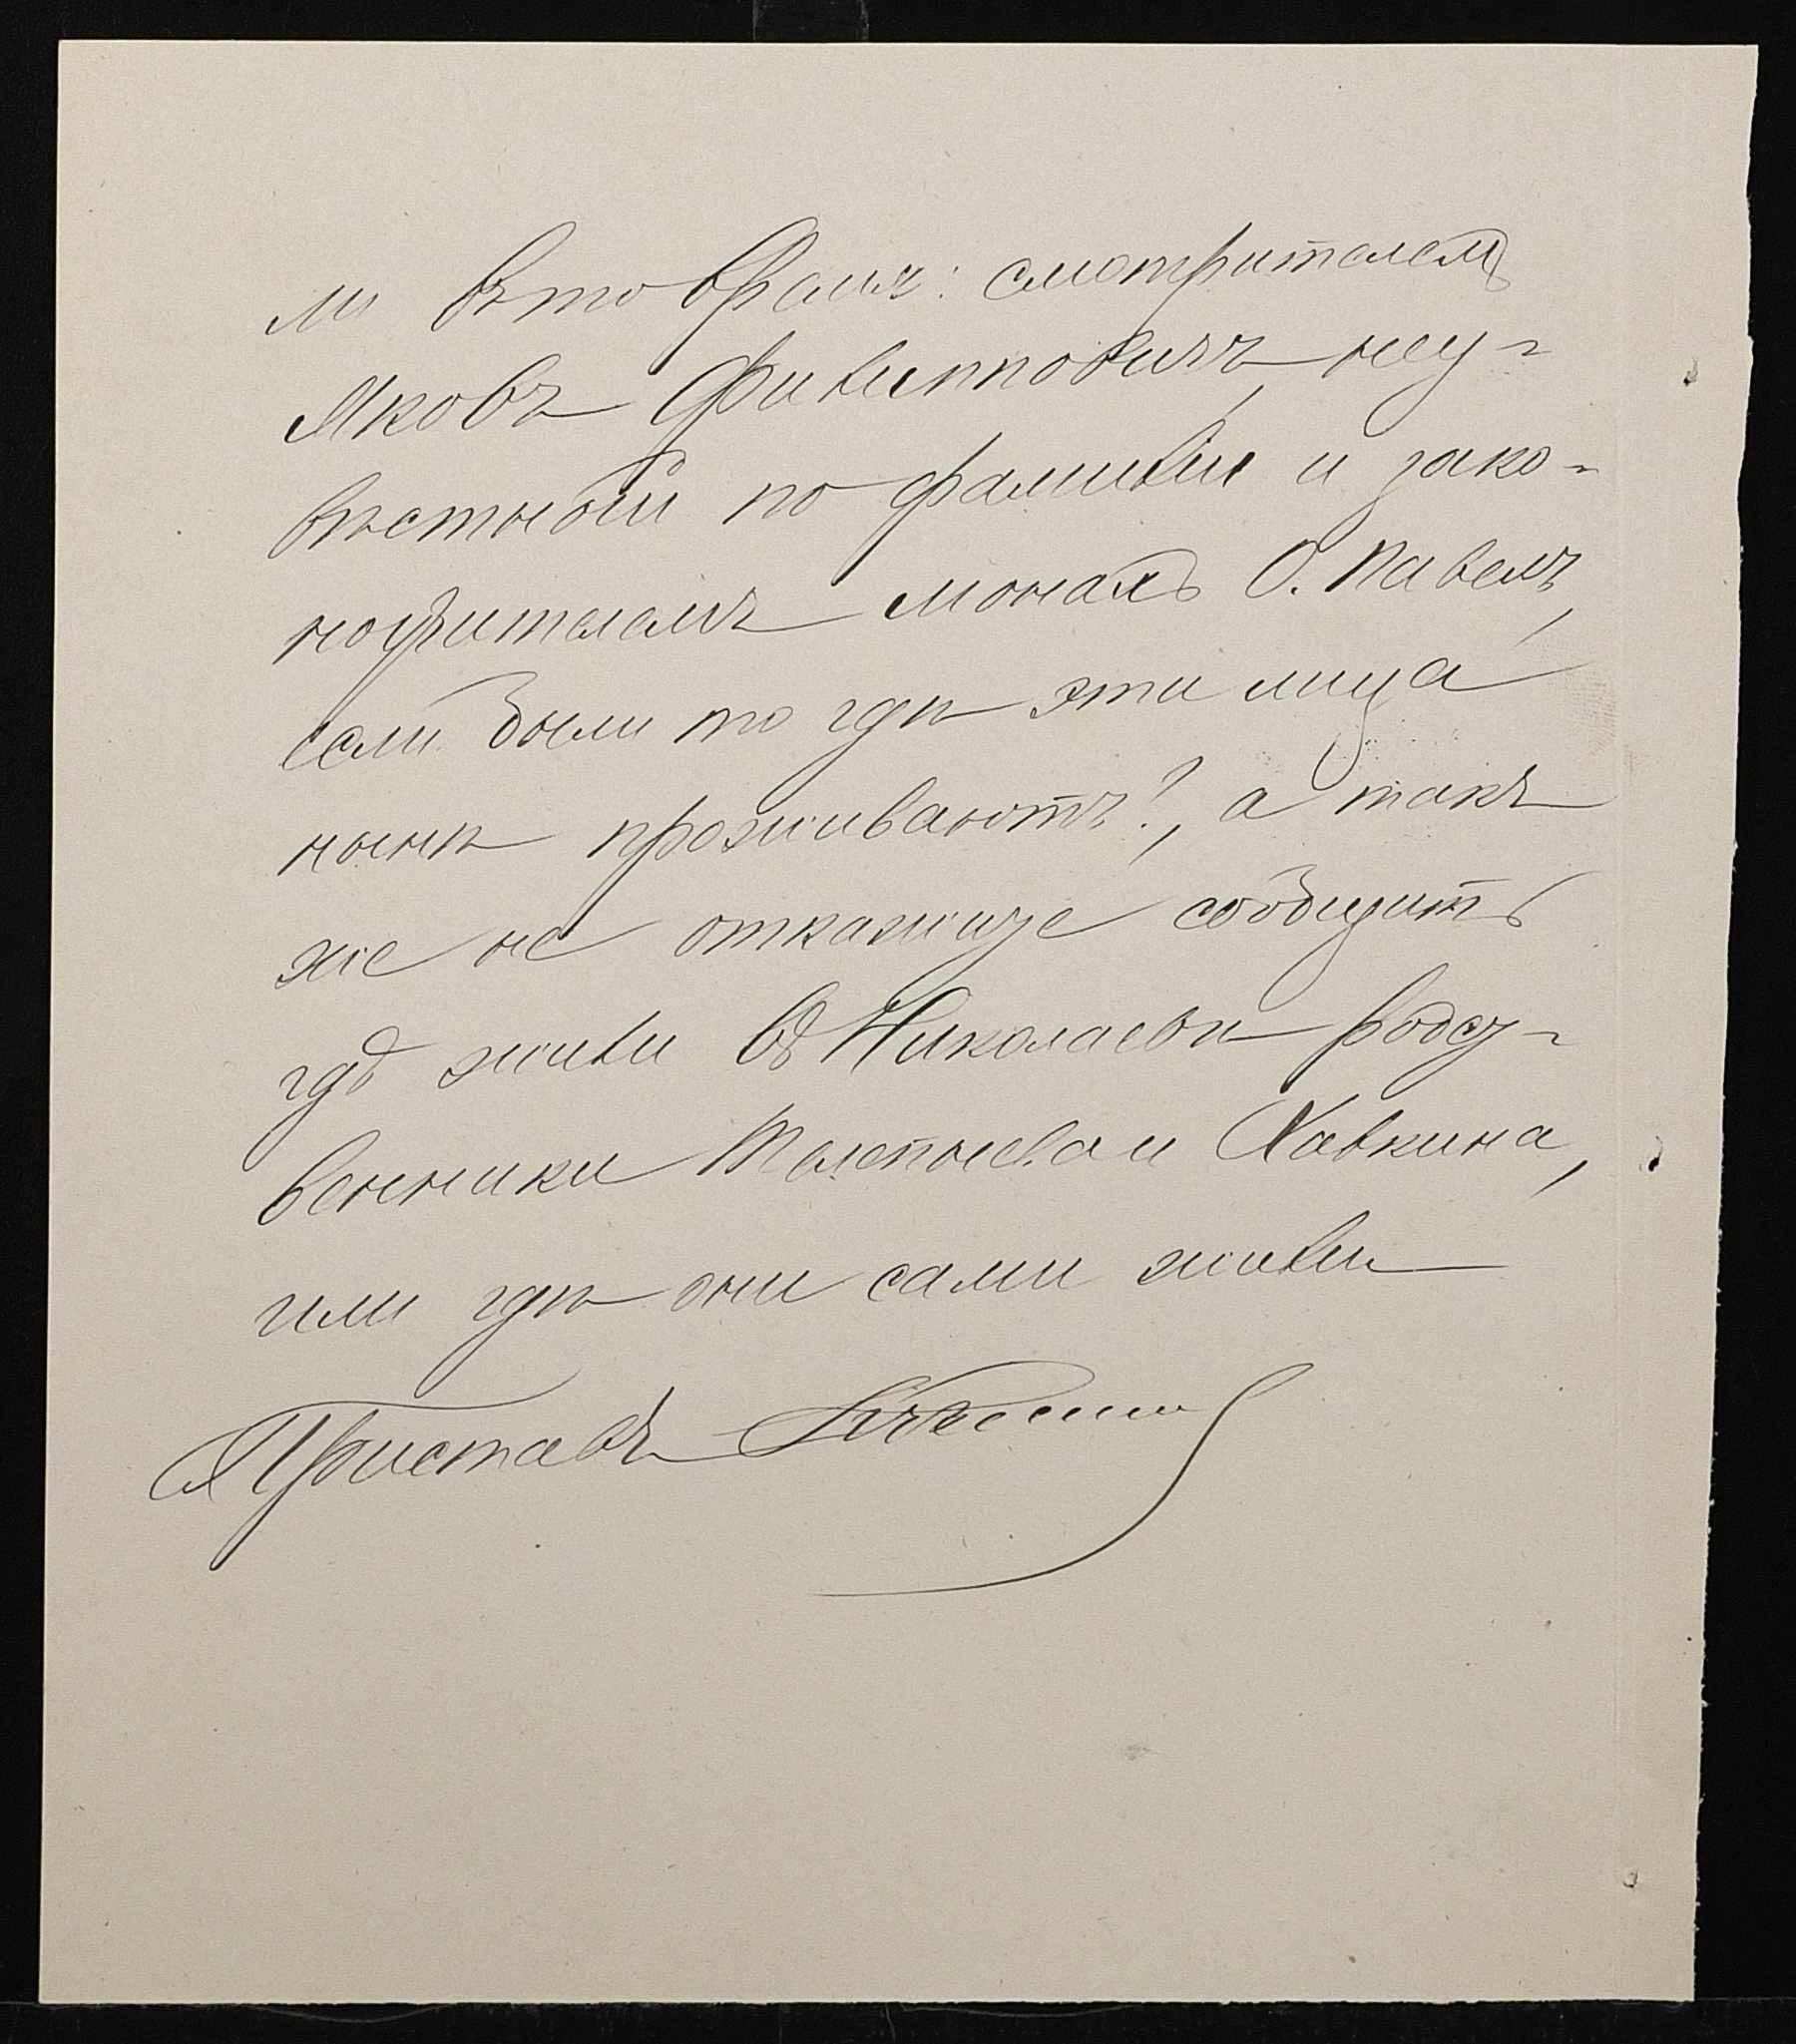 ли въ то время: смотрителемъ
Яковъ Филипповичъ, неу-
вѣстный по фамиліи и зако-
ноучителемъ монахъ О. Павелъ,
если были то гдѣ эти лица
нынѣ проживаютъ?, а такъ
же не откажите сообщить
гдѣ жили въ Николаевѣ родст-
венники и Хавкина,
или гдѣ они сами жили
Приставъ